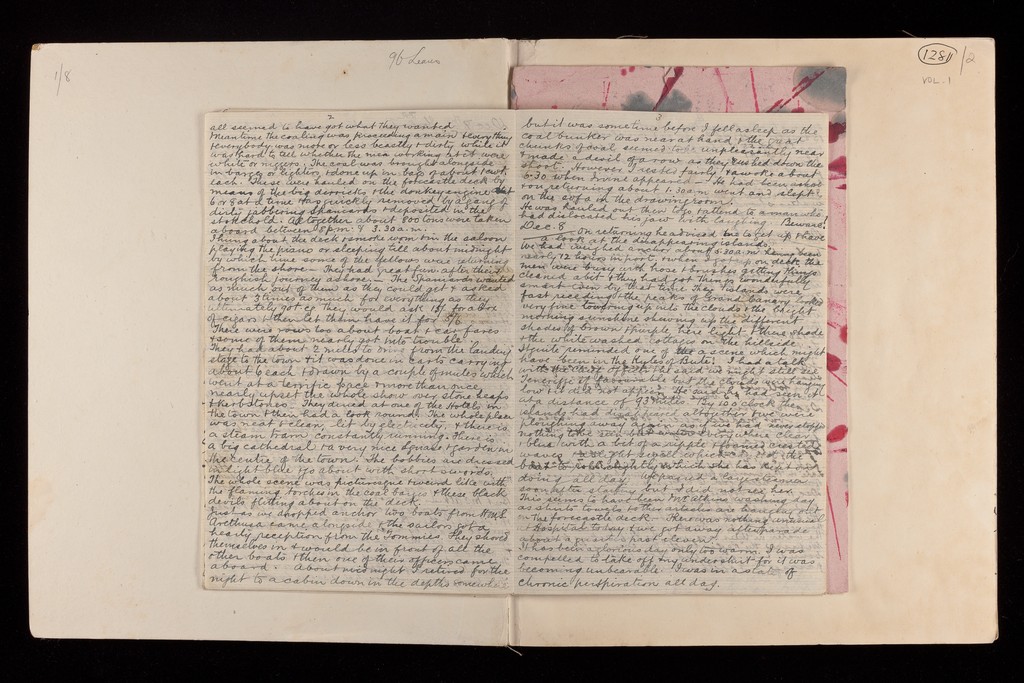 1/8
96 Leaves
128
/2
VOL. 1
2
all seemed to have got what they wanted
Meantime the coaling was proceeding amain & everything
& everybody was more or less beastly & dirty while it
was hard to tell whether the men working at it were
white or niggers. The coal was brought alongside
in barges or lighters & done up in bags of about 1 cwt
each. These were hauled on the forecastle deck by
means of the big derricks & the donkey engine
6 or 8 at a time & as quickly removed by a gang of
dirty jabbering Spaniards & deposited in the
stokehold. Altogether about 800 tons were taken
aboard between 8 p.m. & 3.30 a.m.
I hung about the deck & smoke room & in the saloon
playing the piano or sleeping till about midnight
by which time some of the fellows were returning
from the shore — They had great fun after their
roughish journey ashore — The Spaniards wanted
as much out of them as they could get & asked
about 3 times as much for everything as they
ultimately got e.g. they would ask 15/- for a box
of cigars & then let them have it for 5/6
There were rows too about boat & car fares
& some of them nearly got into trouble.
They had about 2 miles to drive from the landing
stage to the town & it was done in carts carrying
about 6 each & drawn by a couple of mules which
went at a terrific pace & more than once
nearly upset the whole show over stone heaps
& kerbstones. They dined at one of the Hotels in
the town & then had a look round. The whole place
was neat & clean, lit by electricity, & there is
a steam tram constantly running. There is
a big cathedral & a very nice square & garden in
the centre of the town. The bobbies are dressed
in light blue & go about with short swords.
The whole scene was picturesque & weird like with
the flaming torches in the coal barges & these black
devils flitting about on the deck.
Just as we dropped anchor two boats from H.M.S.
Arethusa came alongside & the sailors got a
hearty reception from the Tommies. They shoved
themselves in & would be in front of all the
other boats & then one of their officers came
aboard. About midnight I retired for the
night to a cabin down in the depths somewhere
3
but it was some time before I fell asleep as the
coal bunker was near at hand & the great
chunks of coal seemed to be unpleasantly near
& made a devil of a row as they rushed down the
shoot. However I rested fairly & awoke about
5.30 when Irvine appeared. He had been ashore
& on returning about 1.30 a.m went and slept
on the sofa in the drawing room.
He was hauled out then to go & attend to a man who
had dislocated his jaw in laughing. Beware!
Dec. 8 On returning he advised me to get up & have
a look at the disappearing islands.
We had weighed anchor about 5.30 a.m. having been
nearly 12 hours in port, & when I got up on deck the
men were busy with hose & brushes getting things
cleaned about & they had got things wonderfully
smart even by that time. The Islands were
fast receding & the peaks of Grand Canary looked
very fine towering up into the clouds & the bright
morning sunshine showing up the different
shades of brown & purple, here light & there shade
& the white washed cottages on the hillside.
It quite reminded one of a scene which might
have been in the Kyles of Bute. I had a talk
with the he said we might still see
Teneriffe if favourable but the clouds were hanging
low & it did not appear. He said he had seen it
at a distance of 93 miles. By 10 o'clock the
islands had disappeared altogether & we were
ploughing away again as if we had never stopped
nothing to be seen but everywhere clear
blue with a bit of a ripple & foamy crested
waves & a slight swell which has got the
boat to roll slightly which she has kept on
doing all day. We passed a large liner
soon after starting but I did not see her.
This seems to have been Mr Atkins' washing day
as shirts towels & other articles are hanging out
on the forecastle deck. There was nothing unusual
in Hospital today & we got away after parade
about a quarter past eleven.
It has been a glorious day only too warm. I was
compelled to take off my undershirt for it was
becoming unbearable. I was in a state of
chronic perspiration all day.